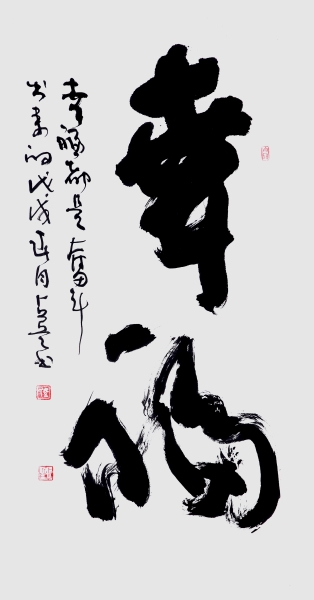 幸福
幸福都是奋斗
出来的戊戌